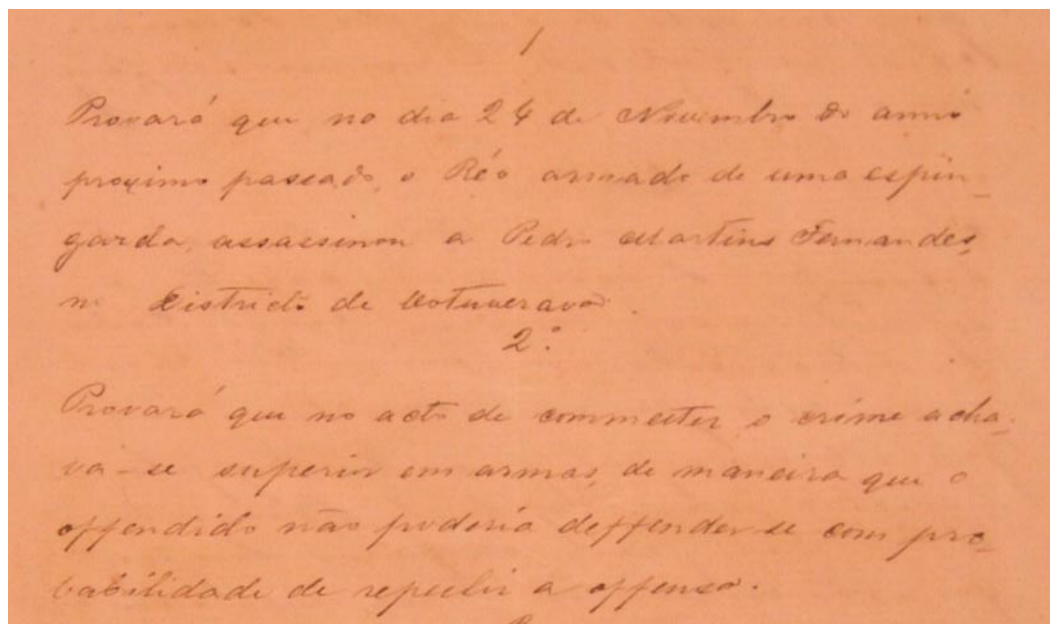 1
Provará que no dia 24 de Novembro do anno
proximo passado, o Réo armado de uma espin_
garda, assassinou a Pedro Martins Fernandes,
no Districto de Votuverava.
2º
Provará que no acto de commetter o crime acha-
va-se superior em armas, de maneira que o
offendido não poderia deffender-se com pro_
babilidade de repellir a offensa.